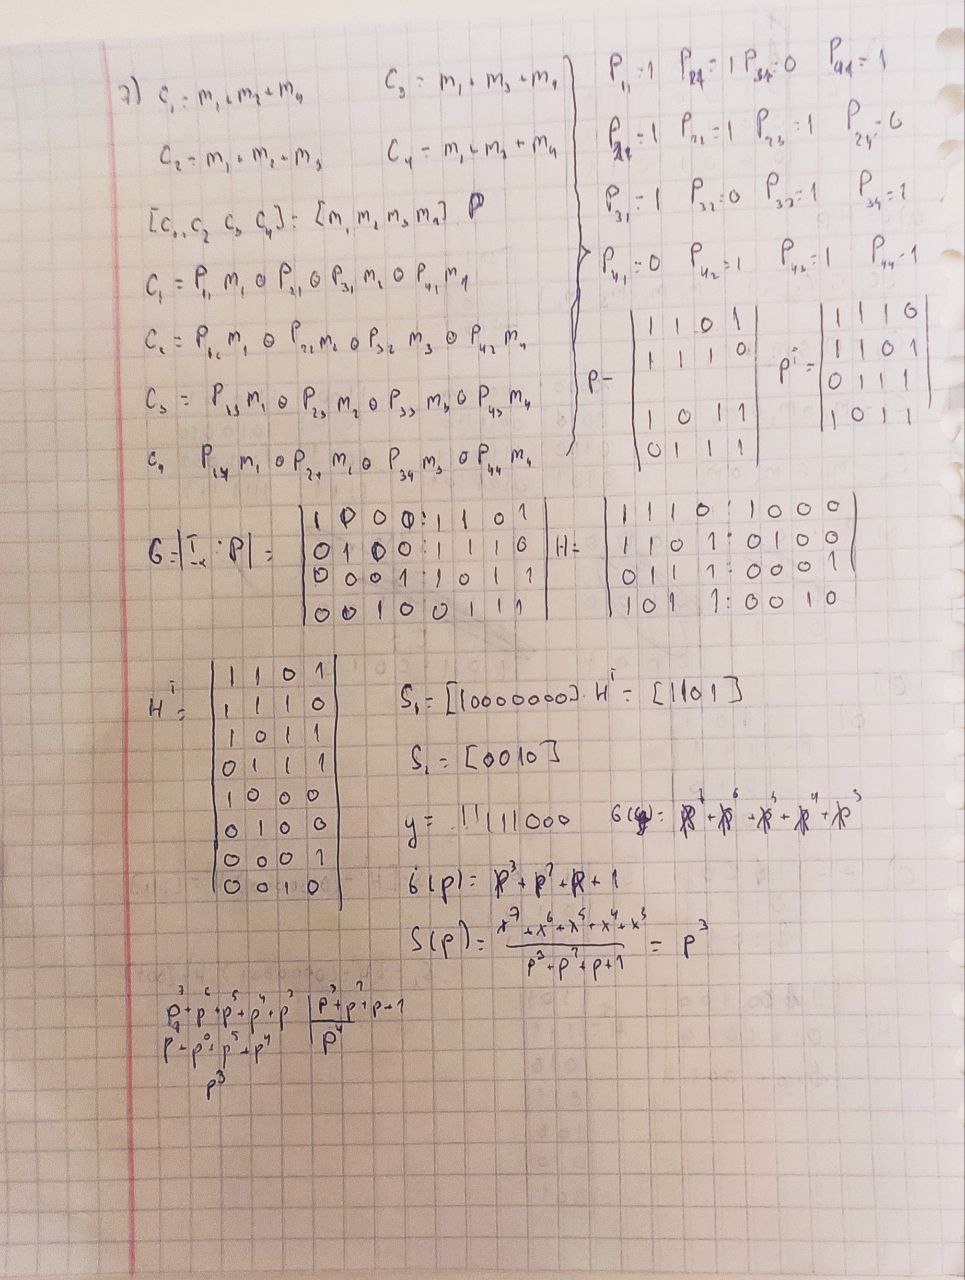 7) C₁ = m₁ + m₂ + m₄    C₃ = m₁ + m₃ + m₄
C₂ = m₁ + m₂ + m₃    C₄ = m₁ + m₃ + m₄
[C₁, C₂ C₃ C₄] = [m₁ m₂ m₃ m₄] P
C₁ = P₁₁ m₁ ⊙ P₂₁ ⊙ P₃₁ m₂ ⊙ P₄₁ m₄
C₂ = P₁₂ m₁ ⊙ P₂₂ m₂ ⊙ P₃₂ m₃ ⊙ P₄₂ m₄
C₃ = P₁₃ m₁ ⊙ P₂₃ m₂ ⊙ P₃₃ m₃ ⊙ P₄₃ m₄
C₄ P₁₄ m₁ ⊙ P₂₄ m₂ ⊙ P₃₄ m₃ ⊙ P₄₄ m₄
P₁₁ = 1 P₂₁ = 1 P₃₁ = 0 P₄₁ = 1
P₂₁ = 1 P₂₂ = 1 P₂₃ = 1 P₂₄ = 0
P₃₁ = 1 P₃₂ = 0 P₃₃ = 1 P₃₄ = 1
P₄₁ = 0 P₄₂ = 1 P₄₃ = 1 P₄₄ = 1
P =
1 1 0 1
1 1 1 0
1 0 1 1
0 1 1 1
Pᵀ =
1 1 1 0
1 1 0 1
0 1 1 1
1 0 1 1
G = |Iₓ : P| =
1 0 0 0 : 1 1 0 1
0 1 0 0 : 1 1 1 0
0 0 0 1 : 1 0 1 1
0 0 1 0 0 1 1 1
H =
1 1 1 0 : 1 0 0 0
1 1 0 1 : 0 1 0 0
0 1 1 1 : 0 0 0 1
1 0 1 1 : 0 0 1 0
Hᵀ =
1 1 0 1
1 1 1 0
1 0 1 1
0 1 1 1
1 0 0 0
0 1 0 0
0 0 0 1
0 0 1 0
S₁ = [10000000] · Hᵀ = [1101]
S₂ = [0010]
y = 11111000
G(p) = p³ + p² + p + 1
S(p) = (x⁷ + x⁶ + x⁵ + x⁴ + x³) / (p³ + p² + p + 1) = p³
p⁷ + p⁶ + p⁵ + p⁴ + p³ | p³ + p² + p + 1
p⁷ + p⁶ + p⁵ + p⁴ | p⁴
p³